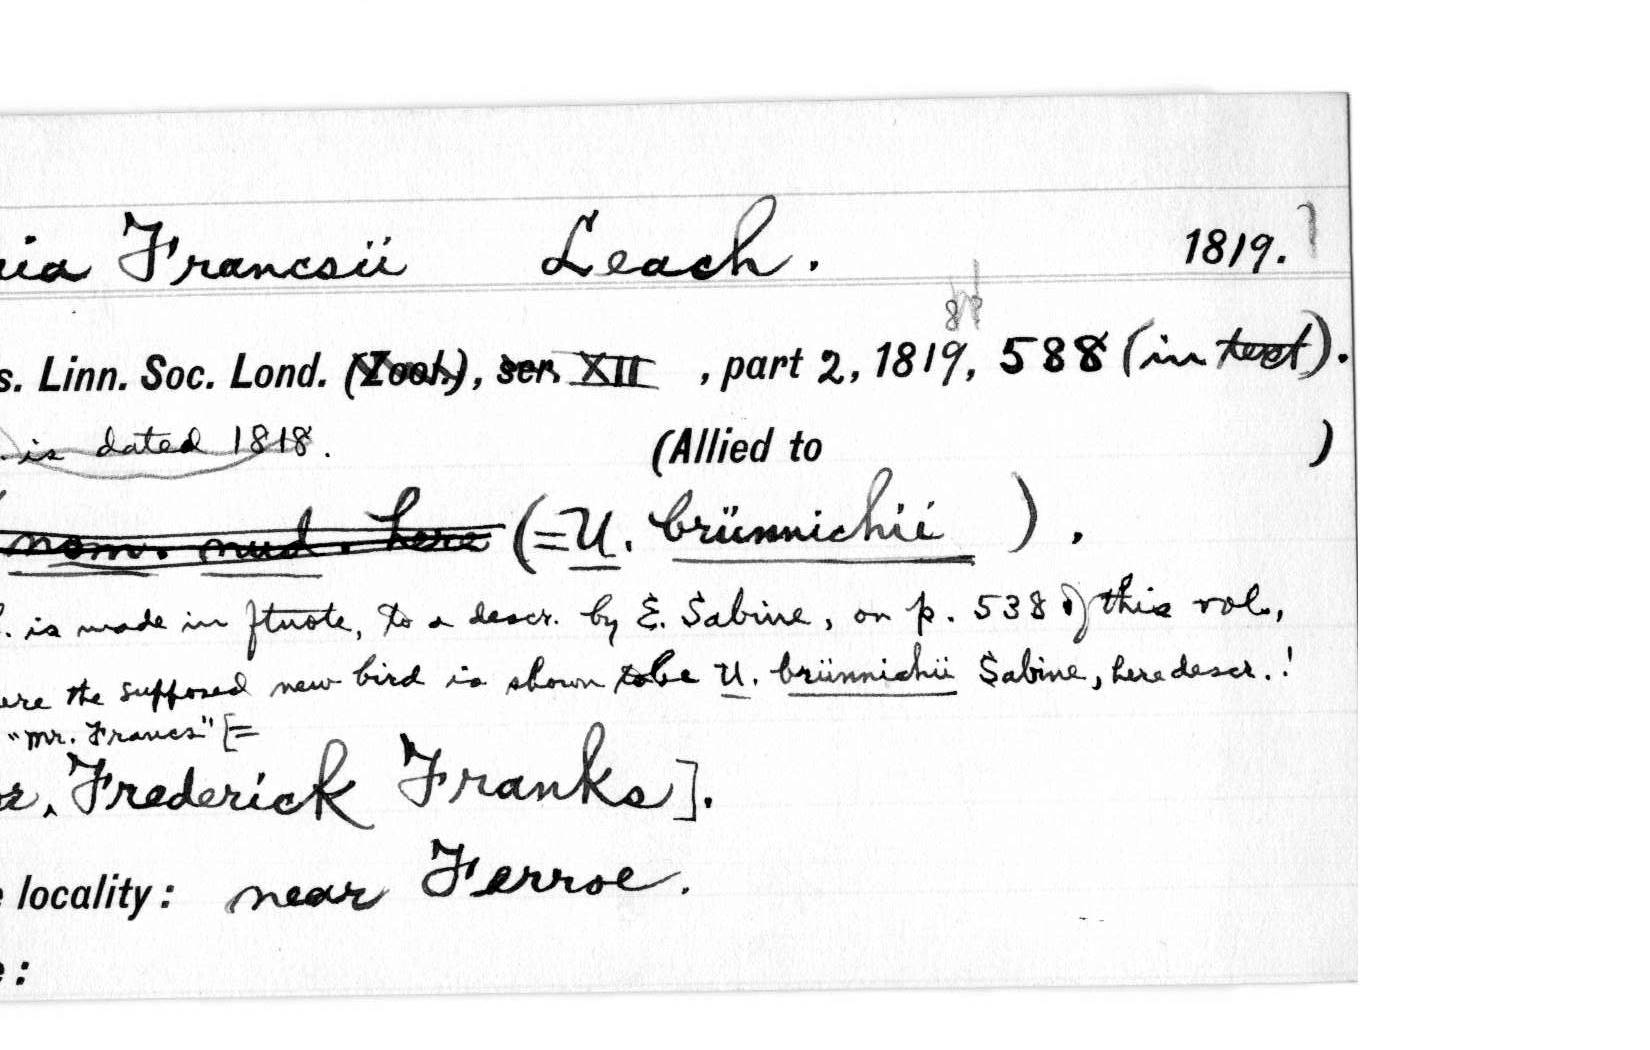 ria Francsii Leach. 1819.
s. Linn. Soc. Lond. (Zool.), ser. XII , part 2, 1819, 588 (in text).
is dated 1818. (Allied to )
nom. nud. here (=U. brünnichii ).
. is made in ftnote, to a descr. by E. Sabine, on p. 538 of this vol.,
ere the supposed new bird is shown to be U. brünnichii Sabine, here descr.!
"Mr. Francs" [=
Frederick Franks].
locality: near Ferroe.
e: